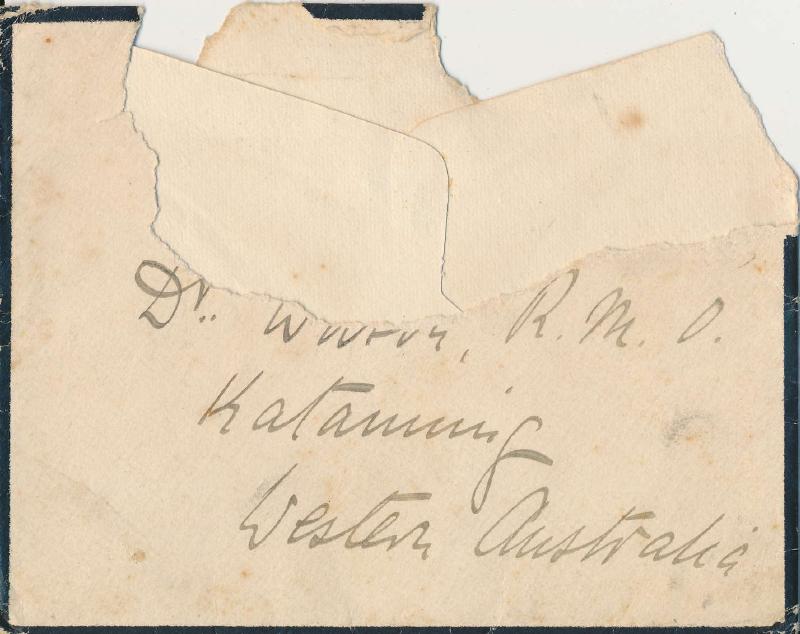 Dr. R. M. O.
Katanning
Western Australia